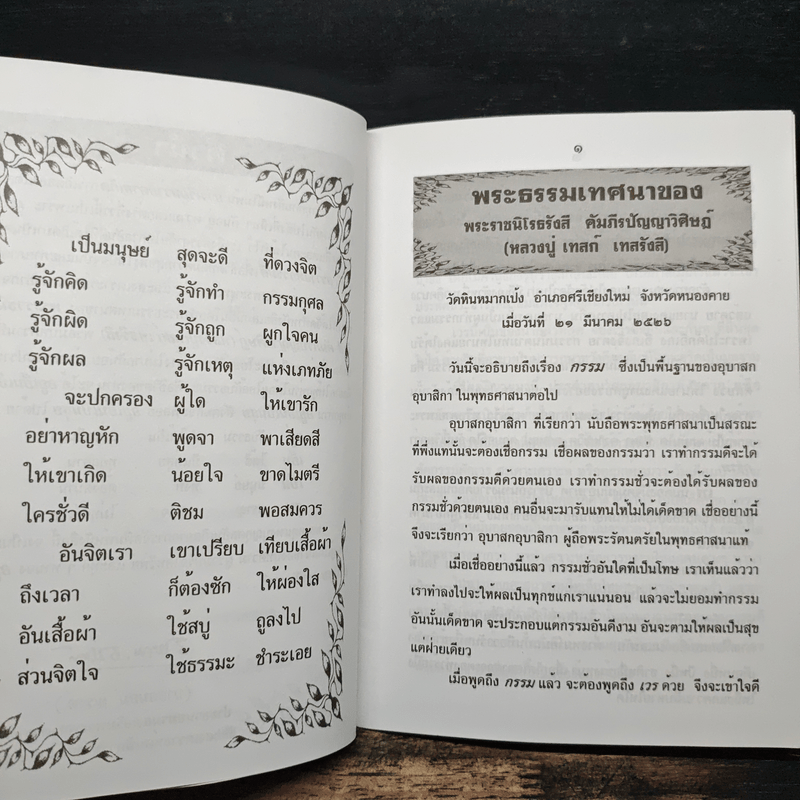 เป็นมนุษย์ สุดจะดี ที่ดวงจิต
รู้จักคิด รู้จักทำ กรรมกุศล
รู้จักผิด รู้จักถูก ผูกใจคน
รู้จักผล รู้จักเหตุ แห่งเภทภัย
จะปกครอง ผู้ใด ให้เขารัก
อย่าหาญหัก พูดจา พาเสียดสี
ให้เขาเกิด น้อยใจ ขาดไมตรี
ใครชั่วดี ติชม พอสมควร
อันจิตเรา เขาเปรียบ เทียบเสื้อผ้า
ถึงเวลา ก็ต้องซัก ให้ผ่องใส
อันเสื้อผ้า ใช้สบู่ ถูลงไป
ส่วนจิตใจ ใช้ธรรมะ ชำระเอย
๑
พระธรรมเทศนาของ
พระราชนิโรธรังสี คัมภีรปัญญาวิศิษฏ์
(หลวงปู่ เทสก์ เทสรังสี)
วัดหินหมากเป้ง อำเภอศรีเชียงใหม่ จังหวัดหนองคาย
เมื่อวันที่ ๒๑ มีนาคม ๒๕๒๖
วันนี้จะอธิบายถึงเรื่อง กรรม ซึ่งเป็นพื้นฐานของอุบาสก
อุบาสิกา ในพุทธศาสนาต่อไป
อุบาสกอุบาสิกา ที่เรียกว่า นับถือพระพุทธศาสนาเป็นสรณะ
ที่พึ่งแท้นั้นจะต้องเชื่อกรรม เชื่อผลของกรรมว่า เราทำกรรมดีจะได้
รับผลของกรรมดีด้วยตนเอง เราทำกรรมชั่วจะต้องได้รับผลของ
กรรมชั่วด้วยตนเอง คนอื่นจะมารับแทนให้ไม่ได้เด็ดขาด เชื่ออย่างนี้
จึงจะเรียกว่า อุบาสกอุบาสิกา ผู้ถือพระรัตนตรัยในพุทธศาสนาแท้
เมื่อเชื่ออย่างนี้แล้ว กรรมชั่วอันใดที่เป็นโทษ เราเห็นแล้วว่า
เราทำลงไปจะให้ผลเป็นทุกข์แก่เราแน่นอน แล้วจะไม่ยอมทำกรรม
อันนั้นเด็ดขาด จะประกอบแต่กรรมอันดีงาม อันจะตามให้ผลเป็นสุข
แต่ฝ่ายเดียว
เมื่อพูดถึง กรรม แล้ว จะต้องพูดถึง เวร ด้วย จึงจะเข้าใจดี